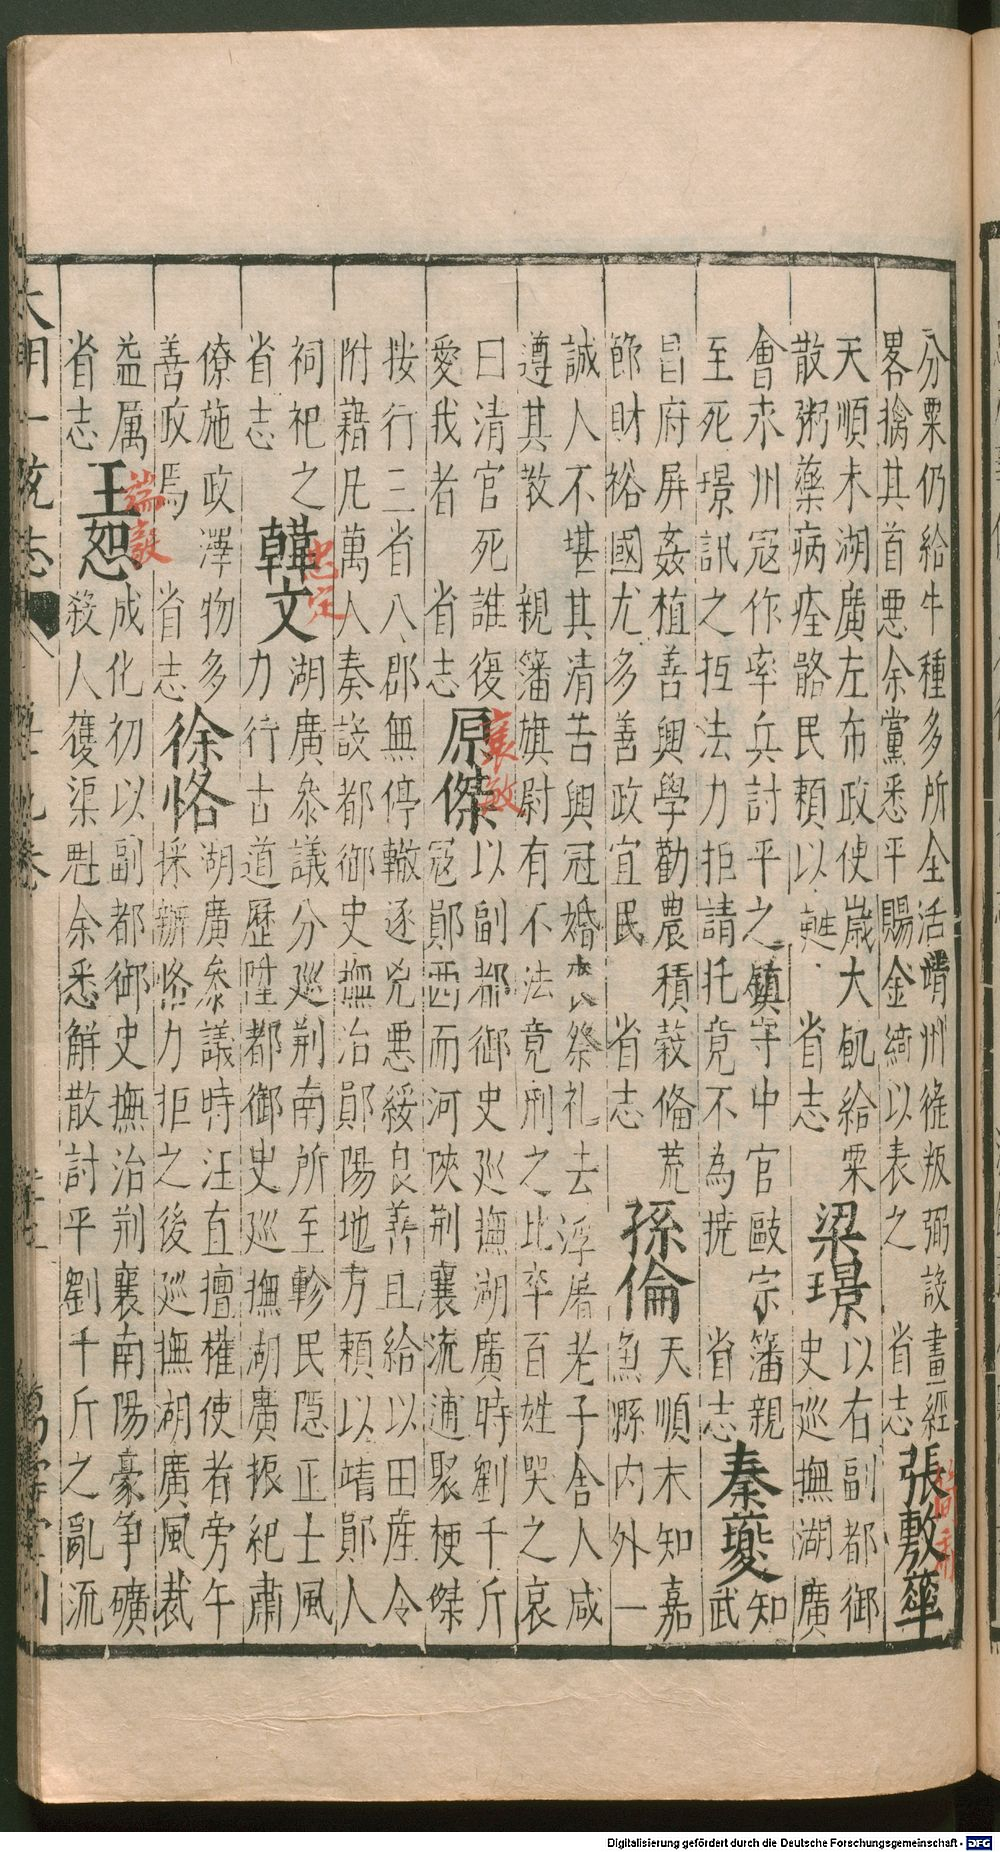 分粟仍給牛種多所全活靖州徭叛弼設畫經
畧擒其首悪余黨悉平賜金綺以表之 省志
張敷華
簡肅
天順末湖廣左布政使歲大飢給粟
散粥藥病痊骼民頼以甦 省志
梁璟
以右副都御
史巡撫湖廣
會永州冦作率兵討平之鎮守中官毆宗藩親
至死璟訊之抵法力拒請托竟不為撓 省志
秦夔
知
武
昌府屏姦植善興學勸農積榖俻荒
節財裕國尤多善政宜民 省志
孫倫
天順末知嘉
魚縣内外一
誠人不堪其清苦興冠婚祭礼去浮屠老子舍人咸
遵其教 親籓旗尉有不法竟刑之比卒百姓哭之哀
曰清官死誰復
愛我者 省志
原傑
襄敏
以副都御史巡撫湖廣時劉千斤
冦鄖西而河陜荆襄流逋聚梗傑
按行二省八郡無停轍逐兇悪綏良善且給以田産令
附藉凡萬人奏設都御史撫治鄖陽地方頼以靖鄖人
祠祀之
省志
韓文
忠定
湖廣叅議分廵荆南所至軫民隠正士風
力行古道歷陞都御史巡撫湖廣振紀肅
僚施政澤物多
善政焉 省志
徐恪
湖廣叅議時汪直擅權使者旁午
採辦恪力拒之後巡撫湖廣風裁
益厲
省志
王恕
端毅
成化初以副都御史撫治荆襄南陽豪争礦
殺人獲渠魁余悉解散討平劉千斤之亂流
大明一統志
萬壽堂刊
Digitalisierung gefördert durch die Deutsche Forschungsgemeinschaft - DFG